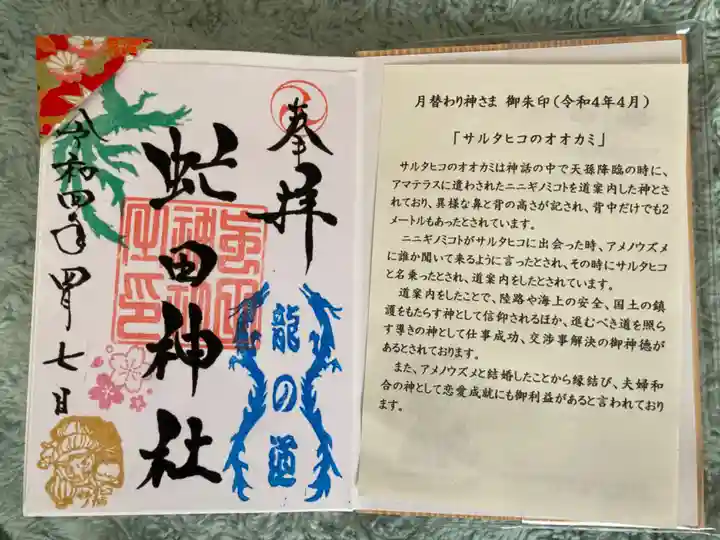 奉拝
虻田神社
龍の道
令和四年四月七日
月替わり神さま 御朱印(令和4年4月)
「サルタヒコのオオカミ」
サルタヒコのオオカミは神話の中で天孫降臨の時に、
アマテラスに遣わされたニニギノミコトを道案内した神とさ
れており、異様な鼻と背の高さが記され、背中だけでも2
メートルもあったとされています。
ニニギノミコトがサルタヒコに出会った時、アメノウズメ
に誰か聞いて来るように言ったとされ、その時にサルタヒコ
と名乗ったとされ、道案内をしたとされています。
道案内をしたことで、陸路や海上の安全、国土の鎮
護をもたらす神として信仰されるほか、進むべき道を照ら
す導きの神として仕事成功、交渉事解決の御神徳が
あるとされております。
また、アメノウズメと結婚したことから縁結び、夫婦和
合の神として恋愛成就にも御利益があると言われており
ます。